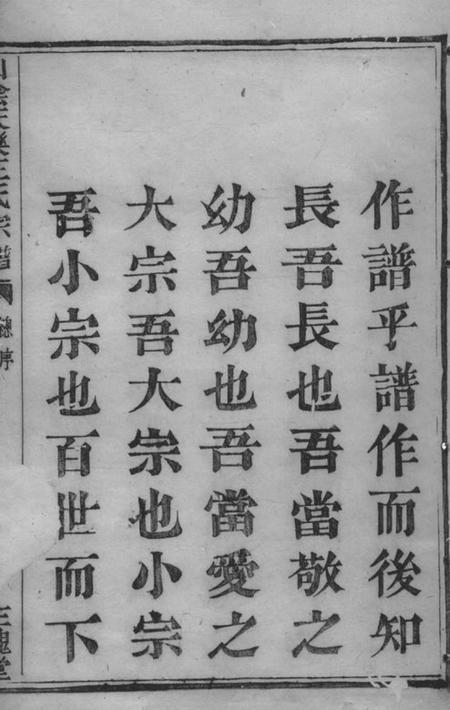 作譜乎譜作而後知
長吾長也吾當敬之
幼吾幼也吾當愛之
大宗吾大宗也小宗
吾小宗也百世而下
王氏宗譜
序
三槐堂